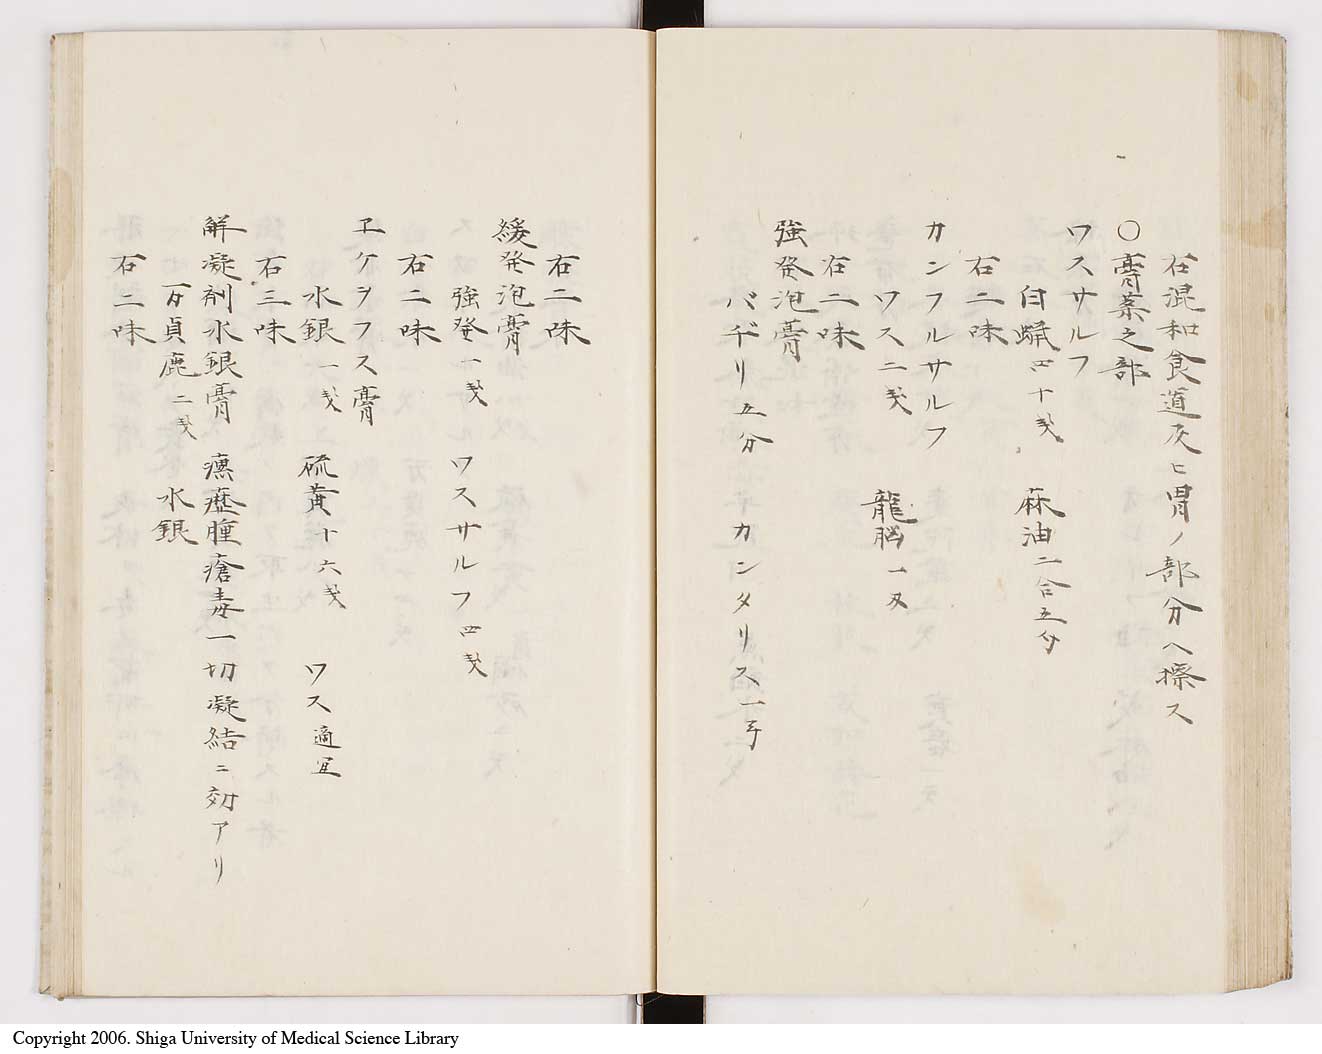 右混和食道及ヒ胃ノ部分ヘ擦ス
○膏薬之部
ワスサルフ
白蝋四十戔 麻油二合五勺
右二味
カンフルサルフ
ワス二戔 龍脳一匁
右二味
強発泡膏
バヂリ五分 カンタリス一
右二味
緩発泡膏
強発一戔 ワスサルフ四戔
右二味
エケヲフス膏
水銀一戔 硫黄十六戔 ワス適宜
右三味
解凝剤水銀膏 瘰癧腫瘡毒一切凝結ニ効アリ
万貞鹿二戔 水銀
右二味
Copyright 2006. Shiga University of Medical Science Library